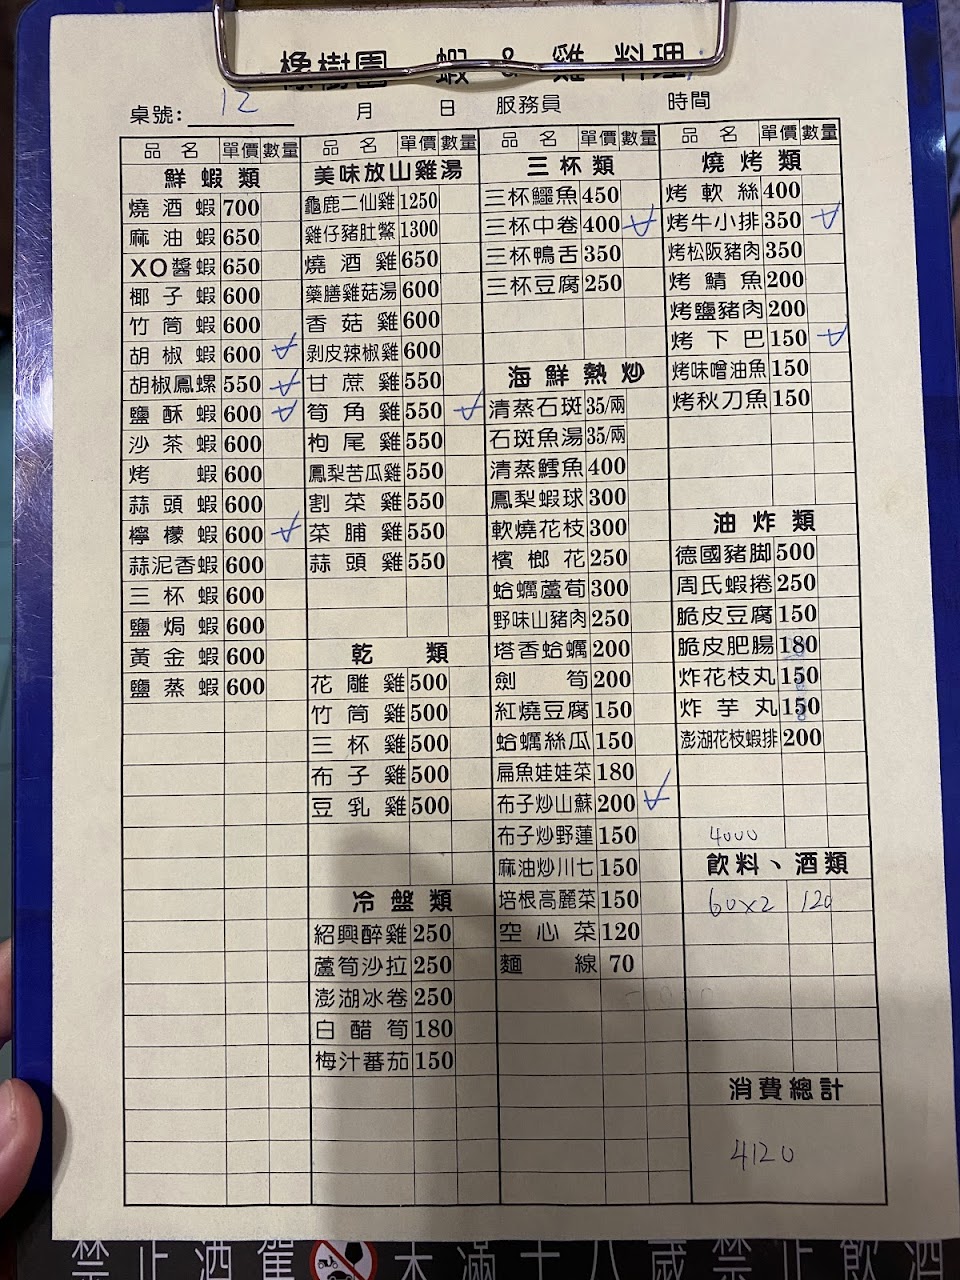 橡樹園 蝦 & 雞 料理
桌號: 12 月 日 服務員 時間
品名 單價 數量
鮮蝦類
燒酒蝦 700
麻油蝦 650
XO醬蝦 650
椰子蝦 600
竹筒蝦 600
胡椒蝦 600 ✓
胡椒鳳螺 550 ✓
鹽酥蝦 600 ✓
沙茶蝦 600
烤蝦 600
蒜頭蝦 600
檸檬蝦 600 ✓
蒜泥香蝦 600
三杯蝦 600
鹽焗蝦 600
黃金蝦 600
鹽蒸蝦 600
品名 單價 數量
美味放山雞湯
龜鹿二仙雞 1250
雞仔豬肚鱉 1300
燒酒雞 650
藥膳雞菇湯 600
香菇雞 600
剝皮辣椒雞 600
甘蔗雞 550
筍角雞 550 ✓
枸尾雞 550
鳳梨苦瓜雞 550
割菜雞 550
菜脯雞 550
蒜頭雞 550
乾類
花雕雞 500
竹筒雞 500
三杯雞 500
布子雞 500
豆乳雞 500
冷盤類
紹興醉雞 250
蘆筍沙拉 250
澎湖冰卷 250
白醋筍 180
梅汁蕃茄 150
品名 單價 數量
三杯類
三杯鱷魚 450
三杯中卷 400 ✓
三杯鴨舌 350
三杯豆腐 250
海鮮熱炒
清蒸石斑 35/兩
石斑魚湯 35/兩
清蒸鱈魚 400
鳳梨蝦球 300
軟燒花枝 300
檳榔花 250
蛤蠣蘆筍 300
野味山豬肉 250
塔香蛤蠣 200
劍筍 200
紅燒豆腐 150
蛤蠣絲瓜 150
扁魚娃娃菜 180
布子炒山蘇 200 ✓
布子炒野蓮 150
麻油炒川七 150
培根高麗菜 150
空心菜 120
麵線 70
品名 單價 數量
燒烤類
烤軟絲 400
烤牛小排 350 ✓
烤松阪豬肉 350
烤鯖魚 200
烤鹽豬肉 200
烤下巴 150 ✓
烤味噌油魚 150
烤秋刀魚 150
油炸類
德國豬脚 500
周氏蝦捲 250
脆皮豆腐 150
脆皮肥腸 180
炸花枝丸 150
炸芋丸 150
澎湖花枝蝦排 200
4000
飲料、酒類
60x2 120
消費總計
4120
禁止酒駕 未滿十八歲禁止飲酒